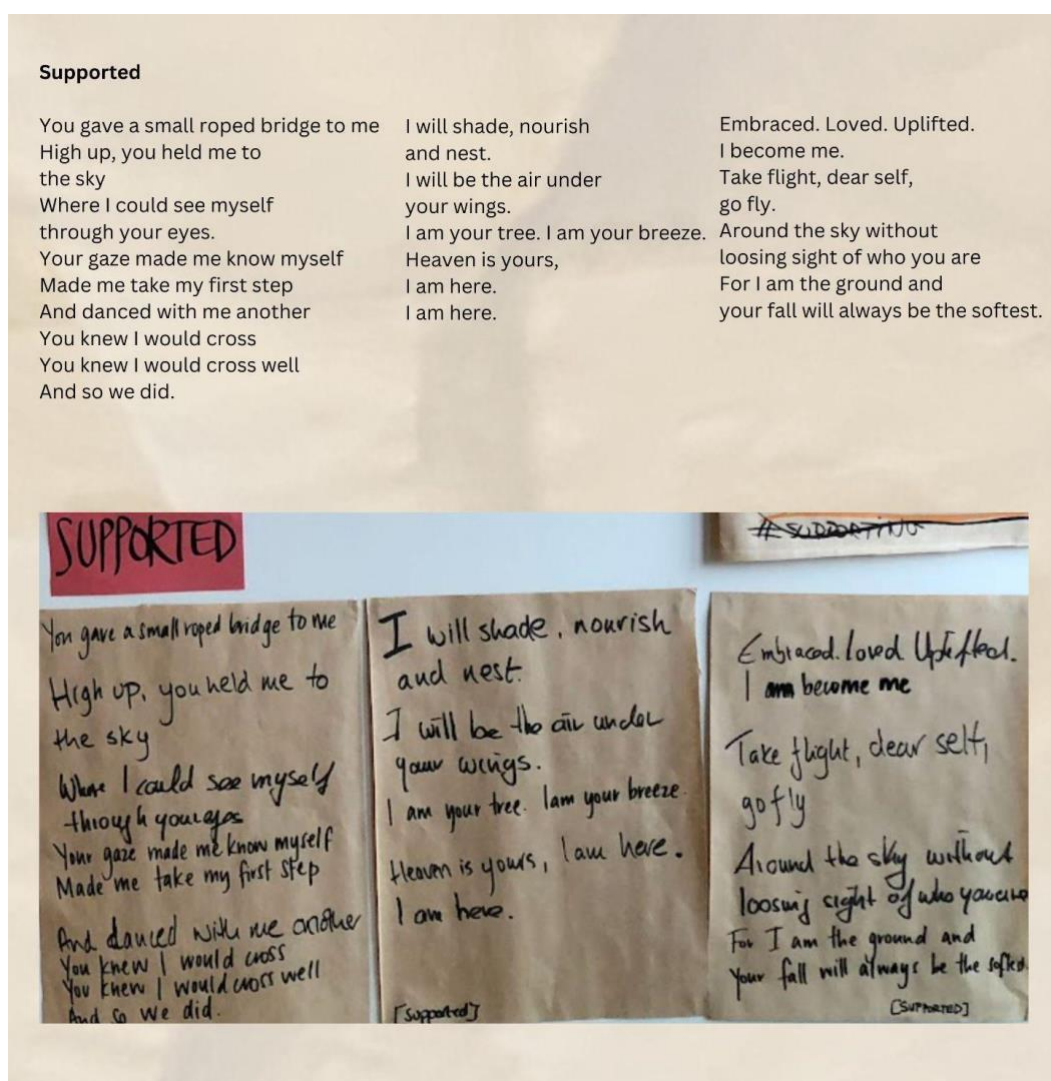 Supported
You gave a small roped bridge to me
High up, you held me to
the sky
Where I could see myself
through your eyes.
Your gaze made me know myself
Made me take my first step
And danced with me another
You knew I would cross
You knew I would cross well
And so we did.
I will shade, nourish
and nest.
I will be the air under
your wings.
I am your tree. I am your breeze.
Heaven is yours,
I am here.
I am here.
Embraced. Loved. Uplifted.
I become me.
Take flight, dear self,
go fly.
Around the sky without
loosing sight of who you are
For I am the ground and
your fall will always be the softest.
SUPPORTED
#SUPPORTING
You gave a small roped bridge to me
High up, you held me to
the sky
Where I could see myself
through your eyes
Your gaze made me know myself
Made me take my first step
And danced with me another
You knew I would cross
You knew I would cross well
And so we did.
I will shade, nourish
and nest.
I will be the air under
your wings.
I am your tree. I am your breeze.
Heaven is yours, I am here.
I am here.
[Supported]
Embraced. Loved Uplifted.
I am become me
Take flight, dear self,
go fly
Around the sky without
loosing sight of who you are
For I am the ground and
your fall will always be the softest.
[SUPPORTED]